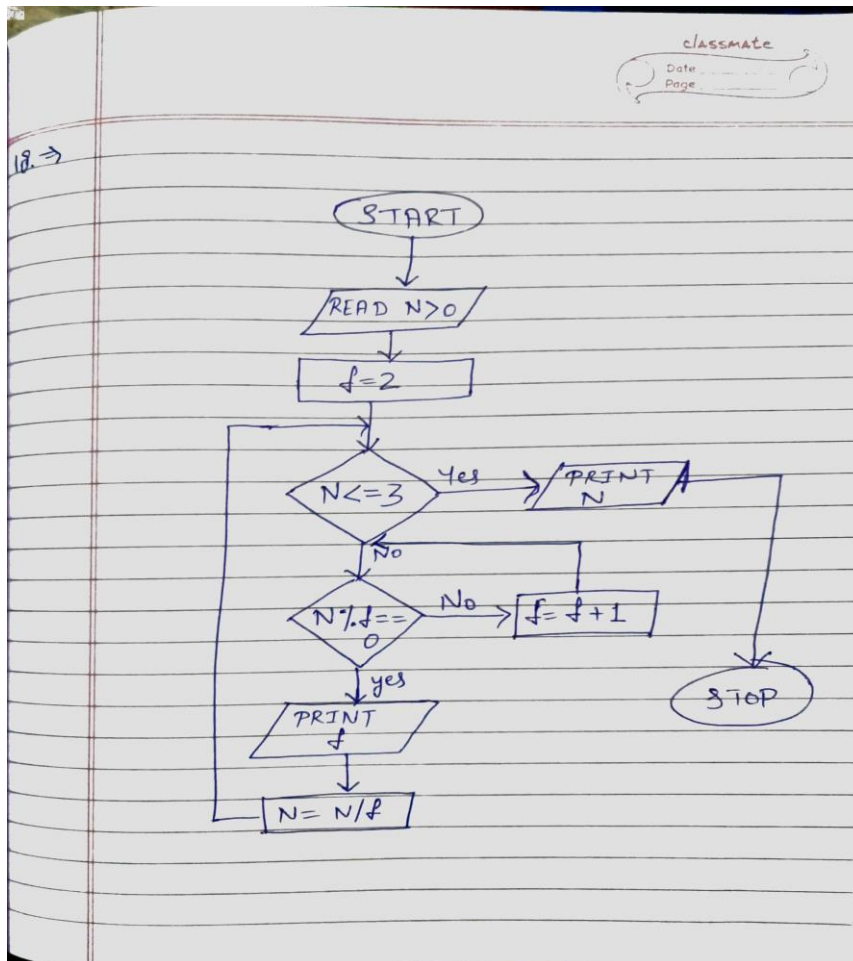 classmate
Date
Page
18. ⇒
START
READ N>0
f=2
N<=3
Yes
PRINT
N
No
N%f==
0
No
f= f+1
yes
PRINT
f
STOP
N= N/f